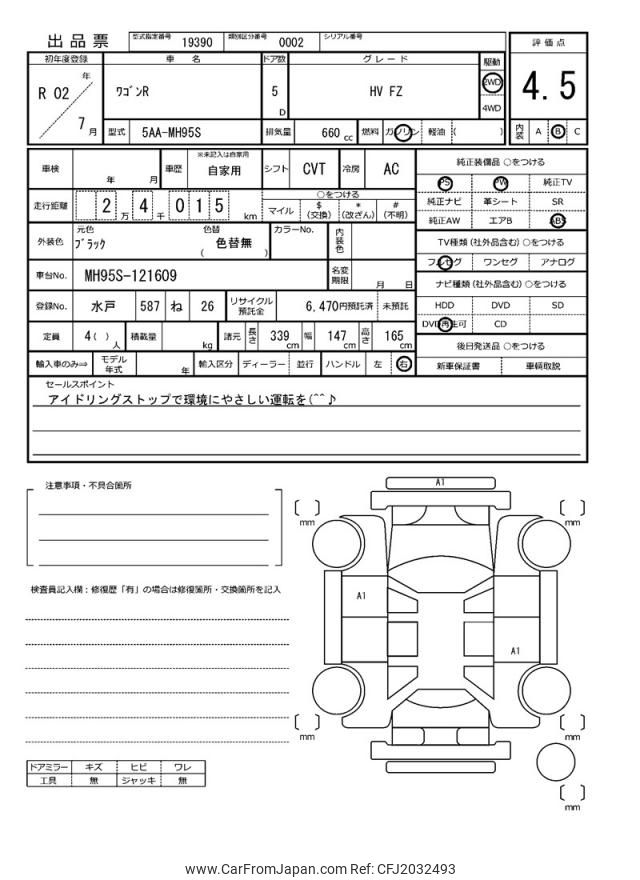 出品票 型式指定番号 19390 類別区分番号 0002 シリアル番号
評価点
4.5
内装 A B C
初年度登録 車名 ドア数 グレード 駆動
R 02 年 7 月 ワゴンR 5 D HV FZ 2WD 4WD
型式 5AA-MH95S 排気量 660 cc 燃料 ガソリン 軽油 ( )
車検 年 月 車歴 ※未記入は自家用 自家用 シフト CVT 冷房 AC
走行距離 2 万 4 千 0 1 5 km
○をつける
マイル $ (交換) * (改ざん) # (不明)
外装色 元色 ブラック 色替 ( 色替無 ) カラーNo. 内装色
車台No. MH95S-121609 名変期限 月 日
登録No. 水戸 587 ね 26 リサイクル預託金 6,470円預託済 未預託
定員 4 ( ) 人 積載量 kg 諸元 長さ 339 cm 幅 147 cm 高さ 165 cm
輸入車のみ⇒ モデル年式 年 輸入区分 ディーラー 並行 ハンドル 左 右
純正装備品 ○をつける
PS PW 純正TV
純正ナビ 革シート SR
純正AW エアB ABS
TV種類 (社外品含む) ○をつける
フルセグ ワンセグ アナログ
ナビ種類 (社外品含む) ○をつける
HDD DVD SD
DVD再生可 CD
後日発送品 ○をつける
新車保証書 車輌取説
セールスポイント
アイドリングストップで環境にやさしい運転を(^^♪
注意事項・不具合箇所
検査員記入欄：修復歴「有」の場合は修復箇所・交換箇所を記入
A1
mm
mm
A1
A1
mm
mm
mm
ドアミラー キズ ヒビ ワレ
工具 無 ジャッキ 無
www.CarFromJapan.com Ref: CFJ2032493